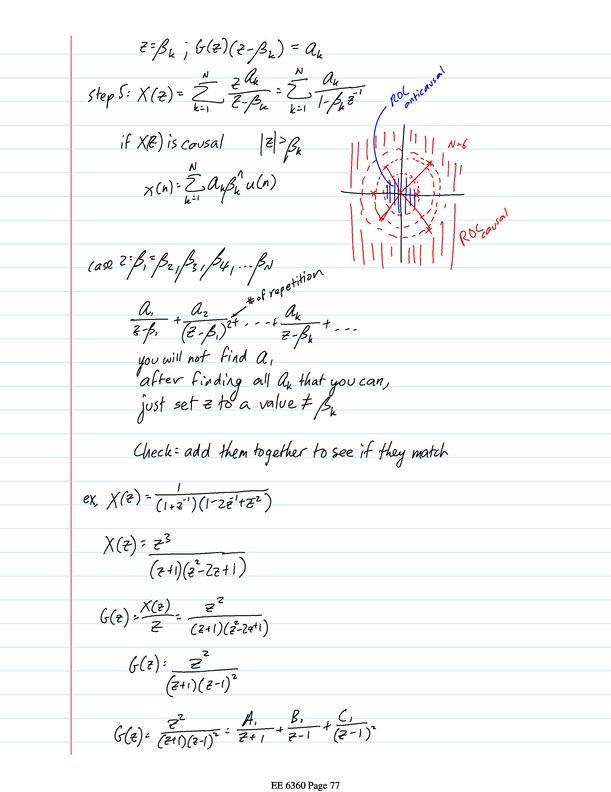 z=βₖ ; G(z)(z-βₖ) = aₖ
step 5: X(z) = Σ_{k=1}^{N} zAₖ/(z-βₖ) = Σ_{k=1}^{N} Aₖ/(1-βₖz⁻¹)
ROC anticausal
if X(z) is causal |z|>βₖ
N=6
x(n) = Σ_{k=1}^{N} Aₖβₖⁿu(n)
ROC causal
case z=β₁=β₂,β₃,β₄,...βN
# of repetition
A₁/(z-β₁) + A₂/(z-β₁)² + ... + Aₖ/(z-βₖ) + ...
you will not find A₁
after finding all Aₖ that you can,
just set z to a value ≠ βₖ
Check: add them together to see if they match
ex, X(z) = 1/((1+z⁻¹)(1-2z⁻¹+z⁻²))
X(z) = z³/((z+1)(z²-2z+1))
G(z) = X(z)/z = z²/((z+1)(z²-2z+1))
G(z) = z²/((z+1)(z-1)²)
G(z) = z²/((z+1)(z-1)²) = A₁/(z+1) + B₁/(z-1) + C₁/(z-1)²
EE 6360 Page 77